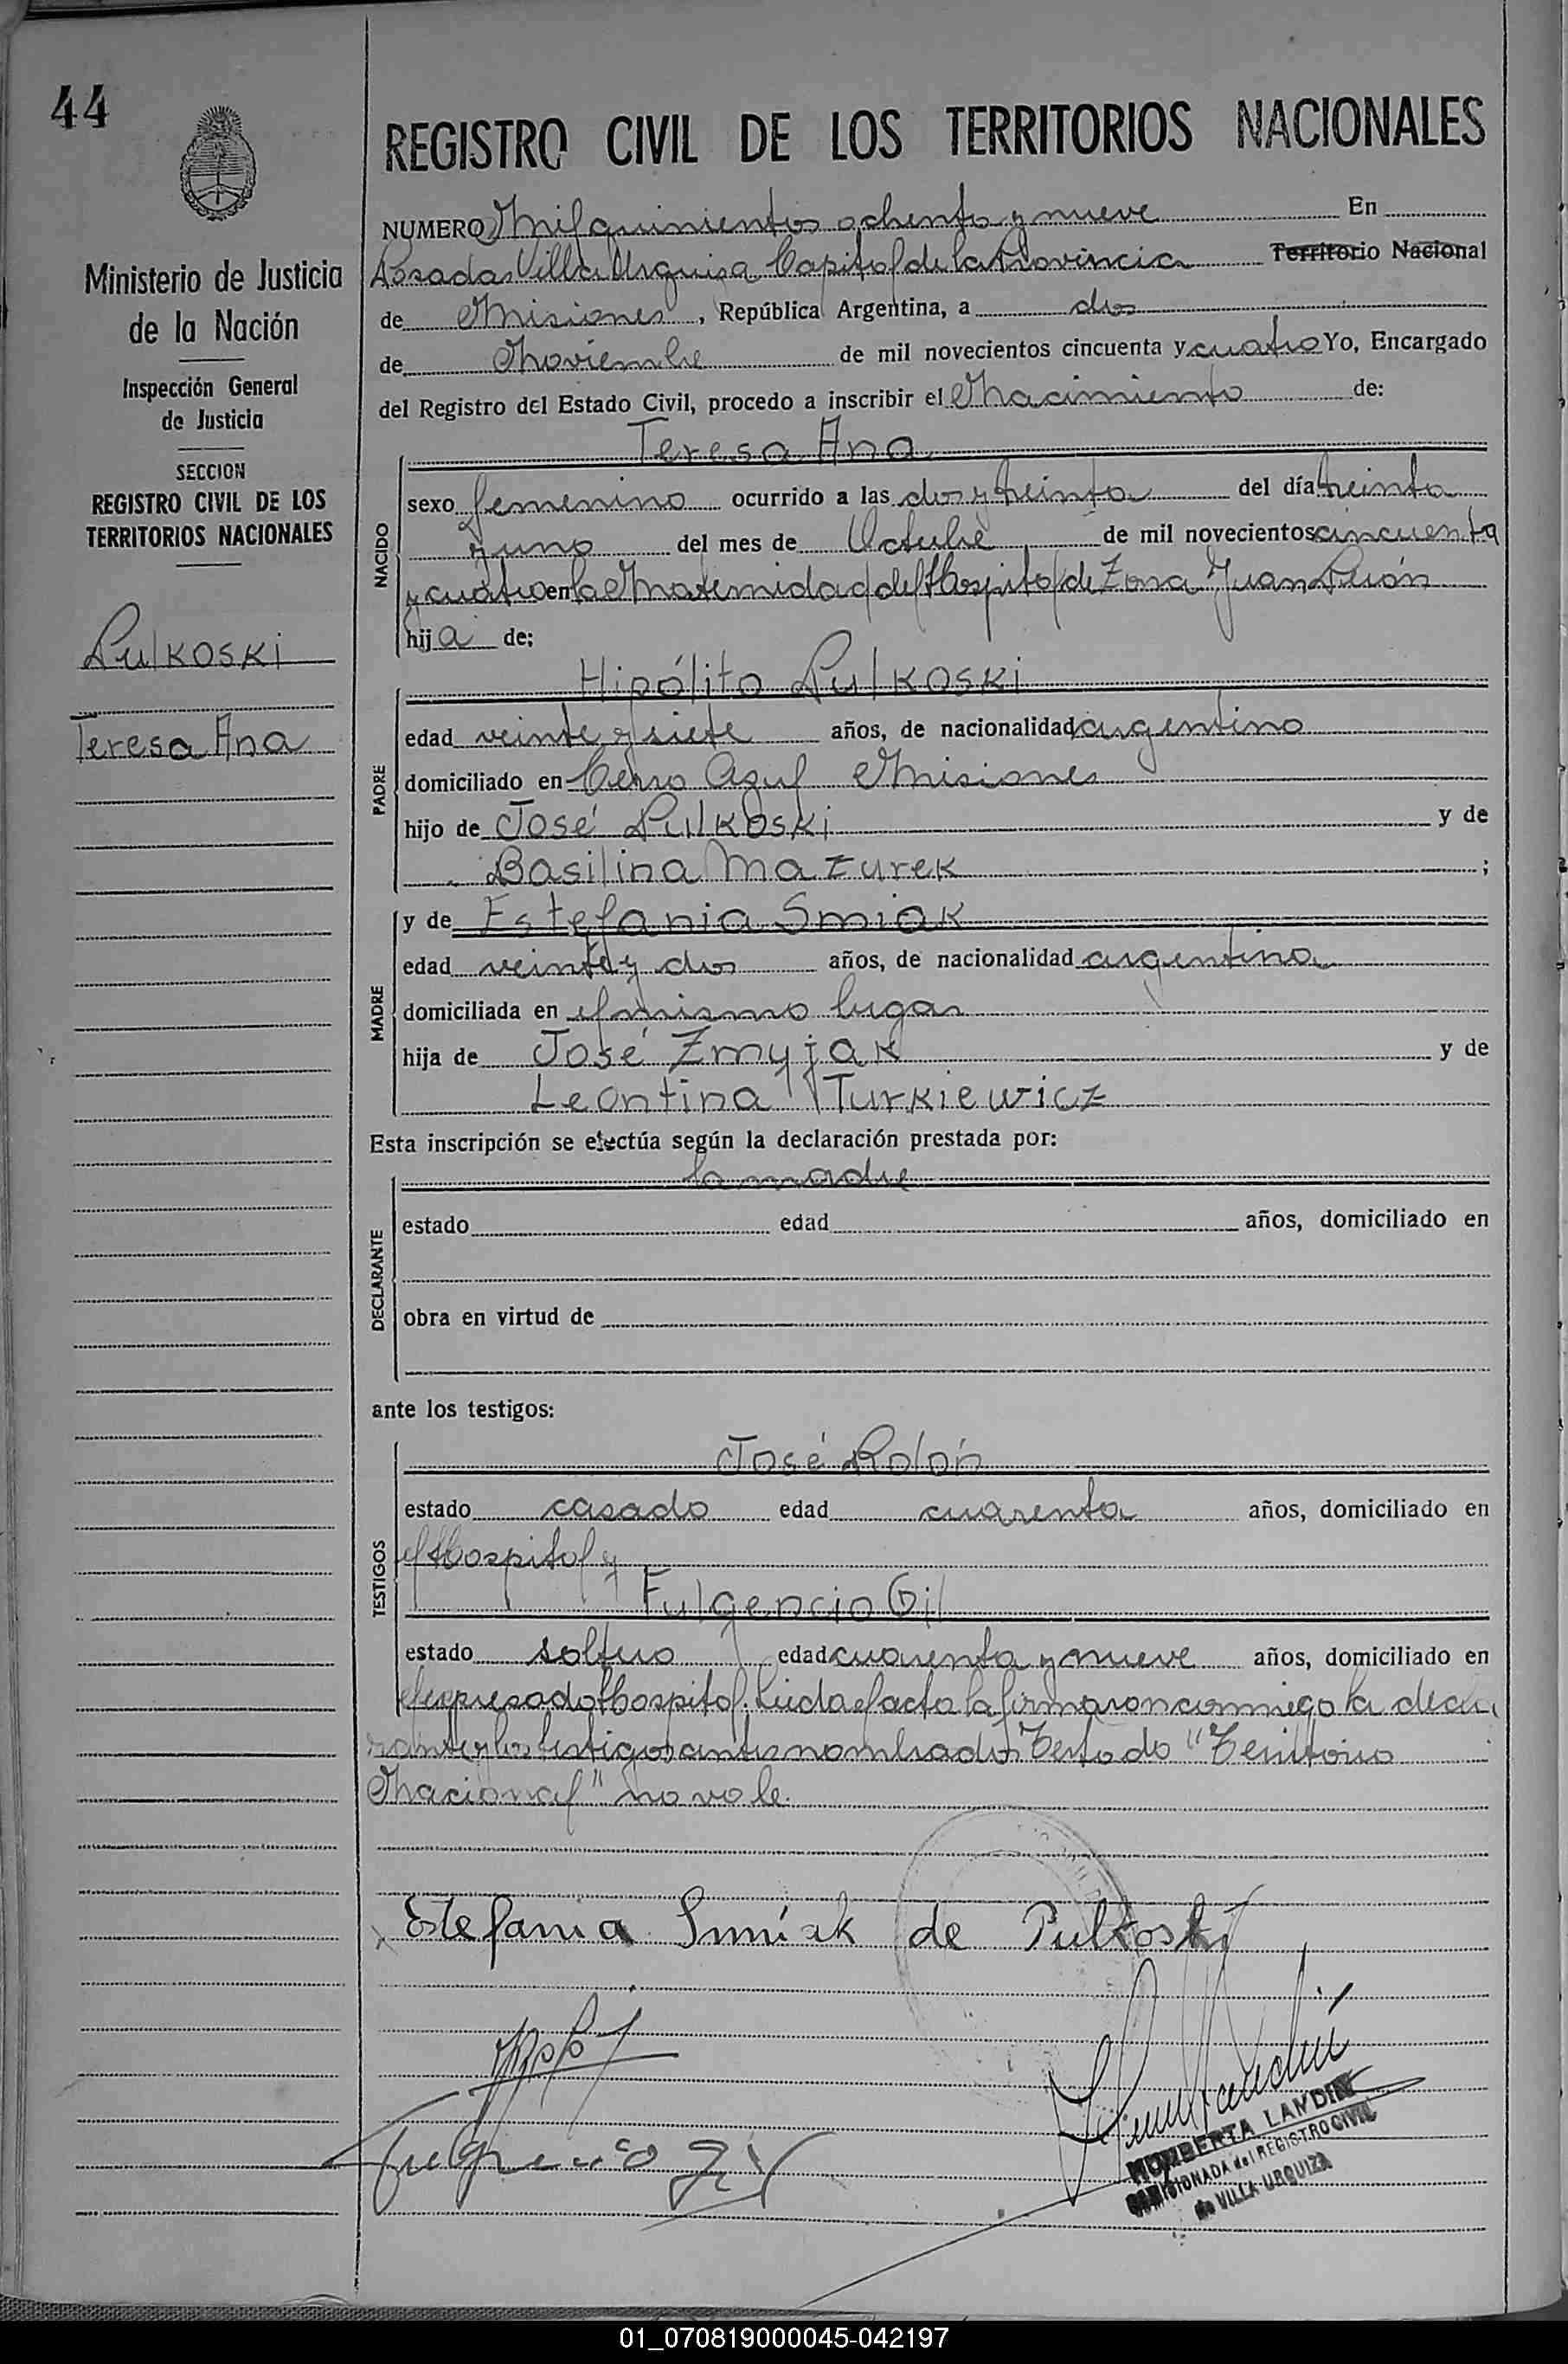 44
REGISTRO CIVIL DE LOS TERRITORIOS NACIONALES
Ministerio de Justicia
de la Nación
Inspección General
de Justicia
SECCION
REGISTRO CIVIL DE LOS
TERRITORIOS NACIONALES
Pulkoski
Teresa Ana
NUMERO Mil quinientos ochenta y nueve En
Posadas Villa Urquiza Capital de la Provincia Territorio Nacional
de Misiones, República Argentina, a dos
de Noviembre de mil novecientos cincuenta y cuatro Yo, Encargado
del Registro del Estado Civil, procedo a inscribir el Nacimiento de:
NACIDO
Teresa Ana
sexo femenino ocurrido a las dos y treinta del día treinta
y uno del mes de Octubre de mil novecientos cincuenta
y cuatro en la Maternidad del Hospital de Zona Juan Perón
hija de:
PADRE
Hipólito Pulkoski
edad veinte y siete años, de nacionalidad argentino
domiciliado en Cerro Azul Misiones
hijo de José Pulkoski y de
Basilina Mazurek ;
MADRE
y de Estefania Smiak
edad veinte y dos años, de nacionalidad argentina
domiciliada en el mismo lugar
hija de José Zmyjak y de
Leontina Turkiewicz
Esta inscripción se efectúa según la declaración prestada por:
DECLARANTE
la madre
estado edad años, domiciliado en
obra en virtud de
ante los testigos:
TESTIGOS
José Rolón
estado casado edad cuarenta años, domiciliado en
el Hospital y
Fulgencio Gil
estado soltero edad cuarenta y nueve años, domiciliado en
el expresado Hospital. Leida el acta la firmaron conmigo la decla
rante y los testigos antes nombrados Testado "Territorio
Nacional" no vale.
Estefania Smiak de Pulkoski
Fulgencio Gil
HOMBERTA LANDIN
COMISIONADA del REGISTRO CIVIL
de VILLA URQUIZA
01_070819000045-042197